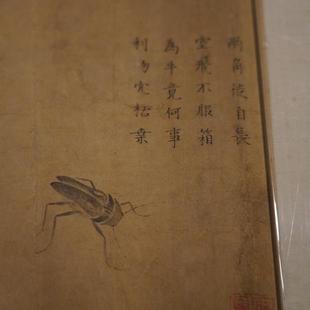 兩角徒自長
空飛不服箱
為牛竟何事
利吻穴枯桒